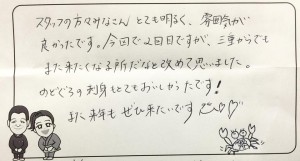 スタッフの方々みなさん とても明るく、雰囲気が
良かったです。今回で2回目ですが、三重からでも
また来たくなる所だなと改めて思いました。
のどぐろの刺身もとてもおいしかったです!
また来年も ぜひ来たいです